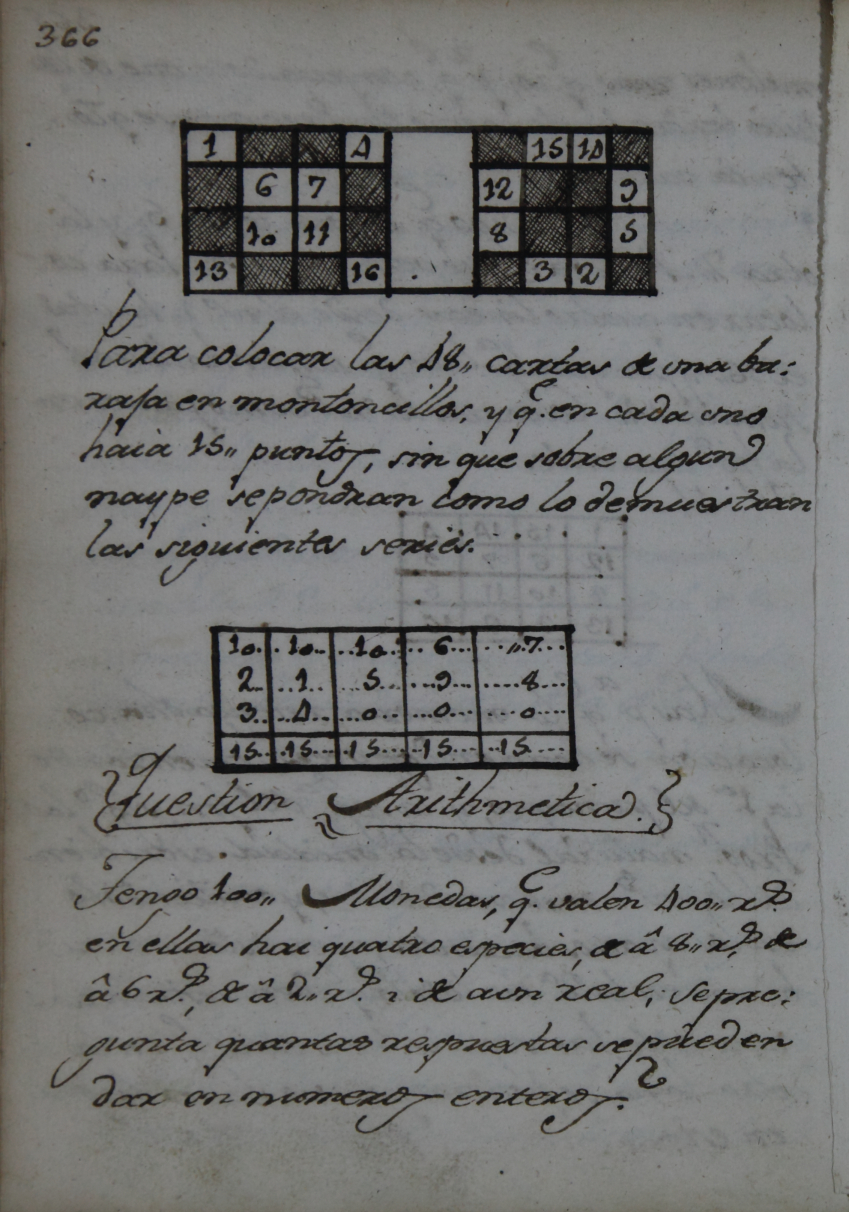 366
1 4 15 14
6 7 12 9
10 11 8 5
13 16 3 2
Para colocar las 48,, cartas de una ba:
raja en montoncillos, y q.e en cada uno
haia 15,, puntos, sin que sobre algun
naype se pondran como lo demuestran
las siguientes series.
10.. 10... 10... 6... ..7...
2.. ..1... ..5... ..9... ....8
3.. ..4... ..0... ..0... ...0...
15.. 15... 15... 15... 15....
Question Arithmetica.
Tengo 100,, Monedas, q.e valen 400,, r.s
en ellas hai quatro especies, de â 8,, r.s, de
â 6 r.s, de â 2,, r.s i de aun real; se pre:
gunta quantas respuestas se pueden
dar en numeros enteros.?